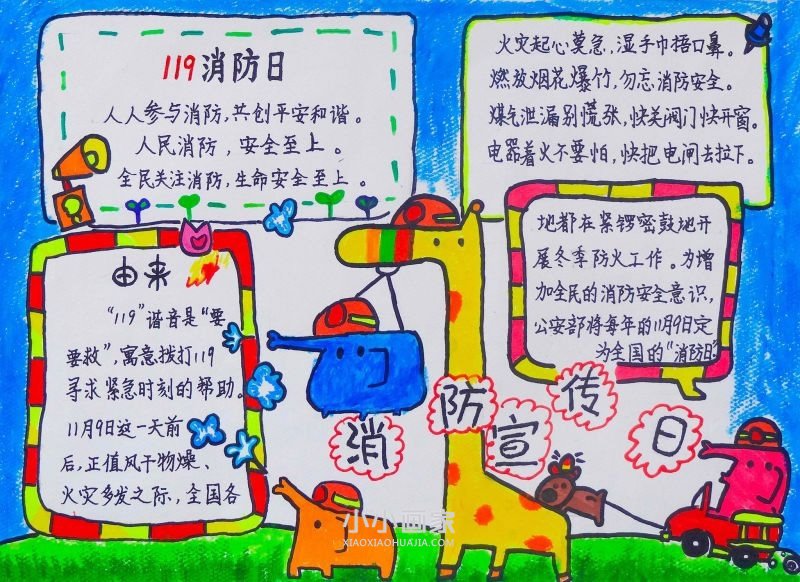 119消防日
人人参与消防,共创平安和谐。
人民消防,安全至上。
全民关注消防,生命安全至上。
火灾起心莫急,湿手巾捂口鼻。
燃放烟花爆竹,勿忘消防安全。
煤气泄漏别慌张,快关阀门快开窗。
电器着火不要怕,快把电闸去拉下。
由来
"119"谐音是"要
要救",寓意拨打119
寻求紧急时刻的帮助。
11月9日这一天前
后,正值风干物燥、
火灾多发之际,全国各
地都在紧锣密鼓地开
展冬季防火工作。为增
加全民的消防安全意识,
公安部将每年的11月9日定
为全国的"消防日"
消防宣传日
小小画家
XIAOXIAOHUAJIA.COM